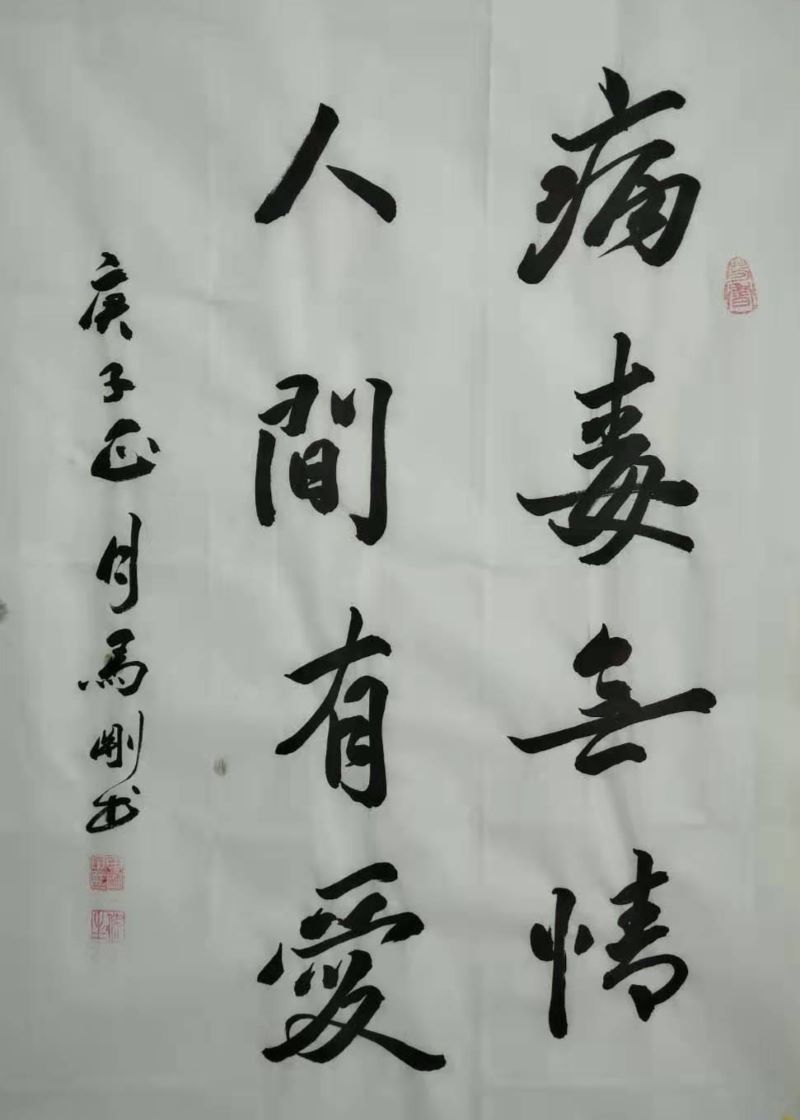 病毒無情
人間有愛
庚子正月馬剛书